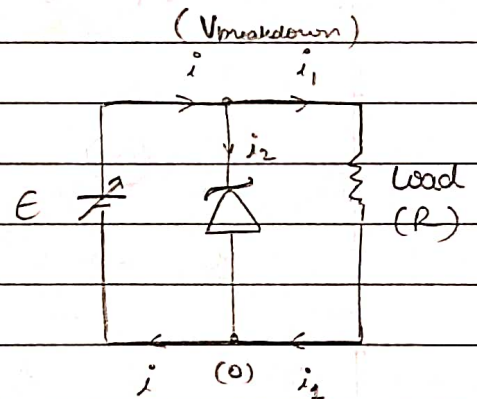 (Vbreakdown)
i i₁
i₂
E
Load
(R)
i (0) i₁